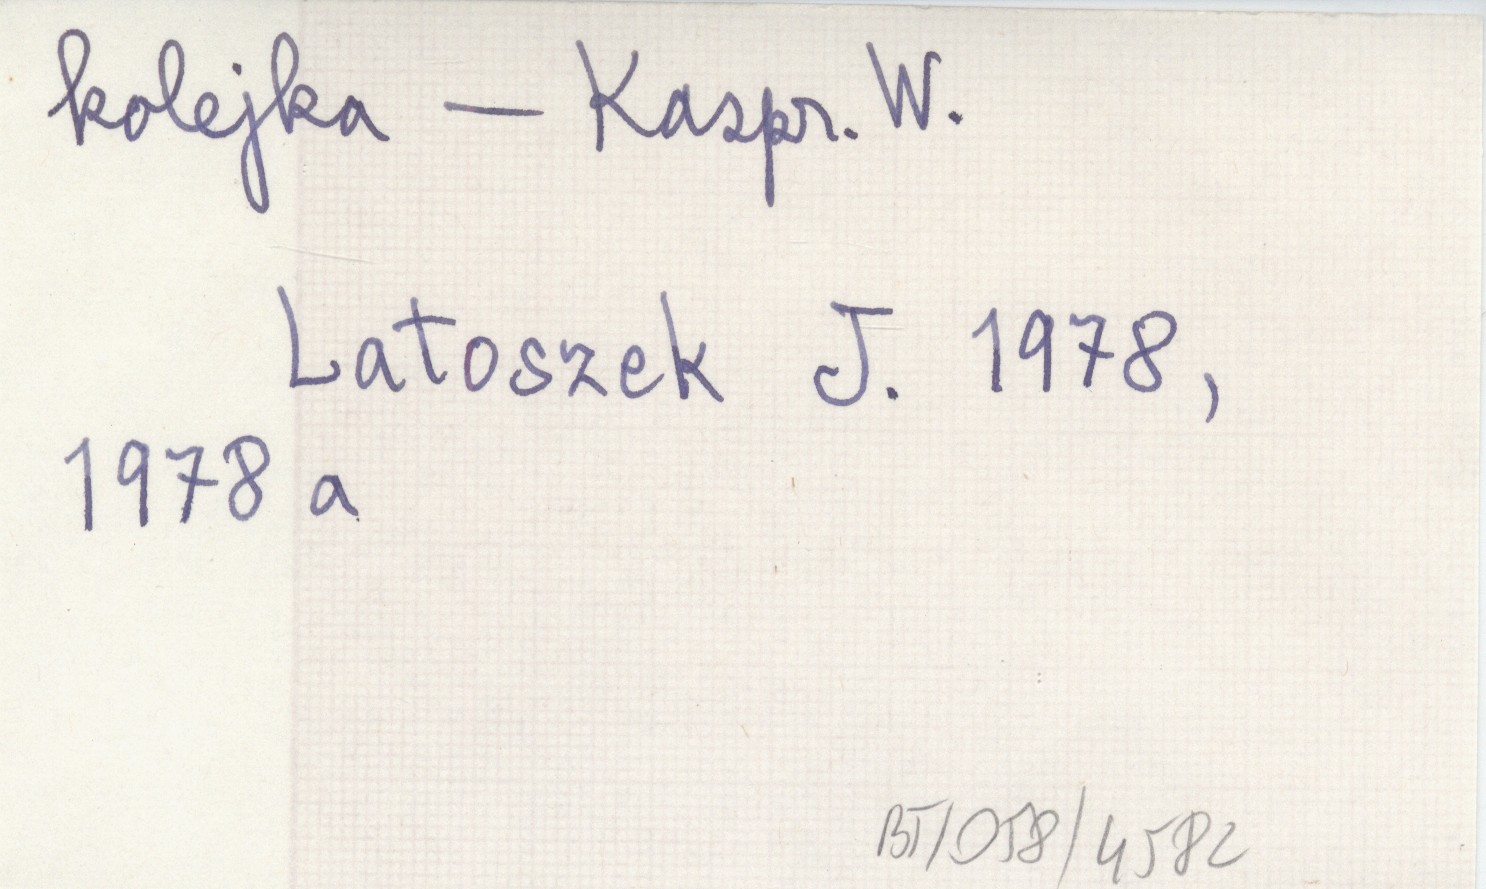 kolejka — Kaspr. W.
Latoszek J. 1978,
1978 a
BT/058/4582